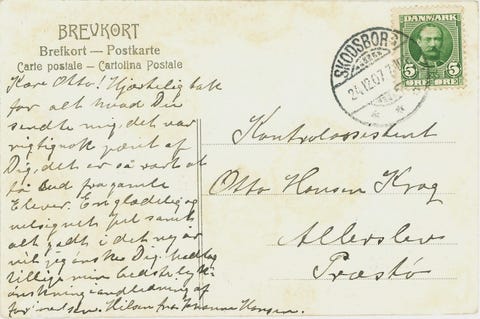 BREVKORT
Brefkort — Postkarte
Carte postale — Cartolina Postale
Kære Otto! Hjertelig tak
for alt hvad Du
sendte mig, det var
rigtignok pænt af
Dig, det er så rart at
få Bud fra gamle
Elever. En glædelig og
velsignet Jul samt
alt godt i det ny år
vil jeg ønske Dig. Modtag
tillige min bedste lyk-
ønskning i anledning af
Hilsen fra Hansen.
SKODSBORG
24.12.07
DANMARK
5 5
ØRE ØRE
Kontrolassistent
Otto Hansen Krag
Allerslev
Præstø